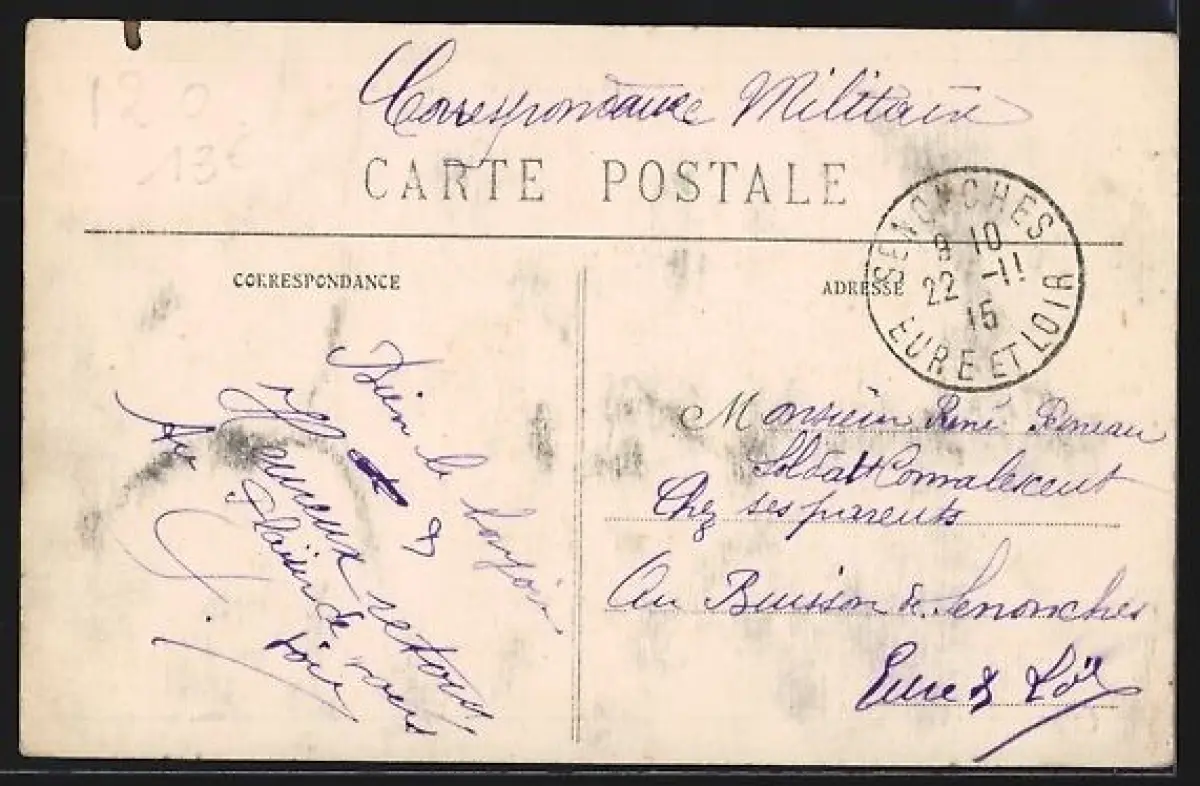 120
13€
Correspondance Militaire
CARTE POSTALE
SENONCHES
9 10
22 -11
15
EURE ET LOIR
CORRESPONDANCE
ADRESSE
Bien le bonjour
&
Heureux retour
Au plaisir de vous
voir
Monsieur René
Soldat Convalescent
Chez ses parents
Au Buisson de Senonches
Eure & Loir